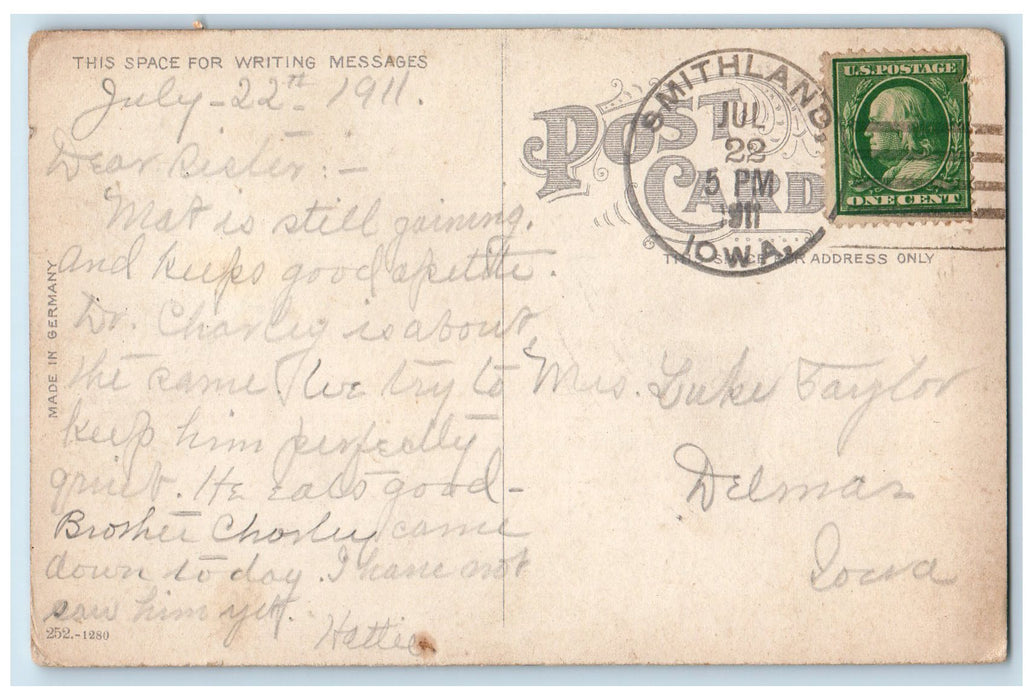 THIS SPACE FOR WRITING MESSAGES
July - 22nd - 1911.
Dear Sister : -
Mat is still gaining.
and keeps good apetite.
Dr. Charley is about
the same We try to
keep him perfectly
quiet. He eats good -
Brother Charley came
down to day. I have not
saw him yet.
Hattie
252.-1280
MADE IN GERMANY
POST CARD
SMITHLAND,
JUL
22
5 PM
1911
IOWA.
U.S. POSTAGE
ONE CENT
THIS SPACE FOR ADDRESS ONLY
Mrs. Luke Taylor
Delmar
Iowa